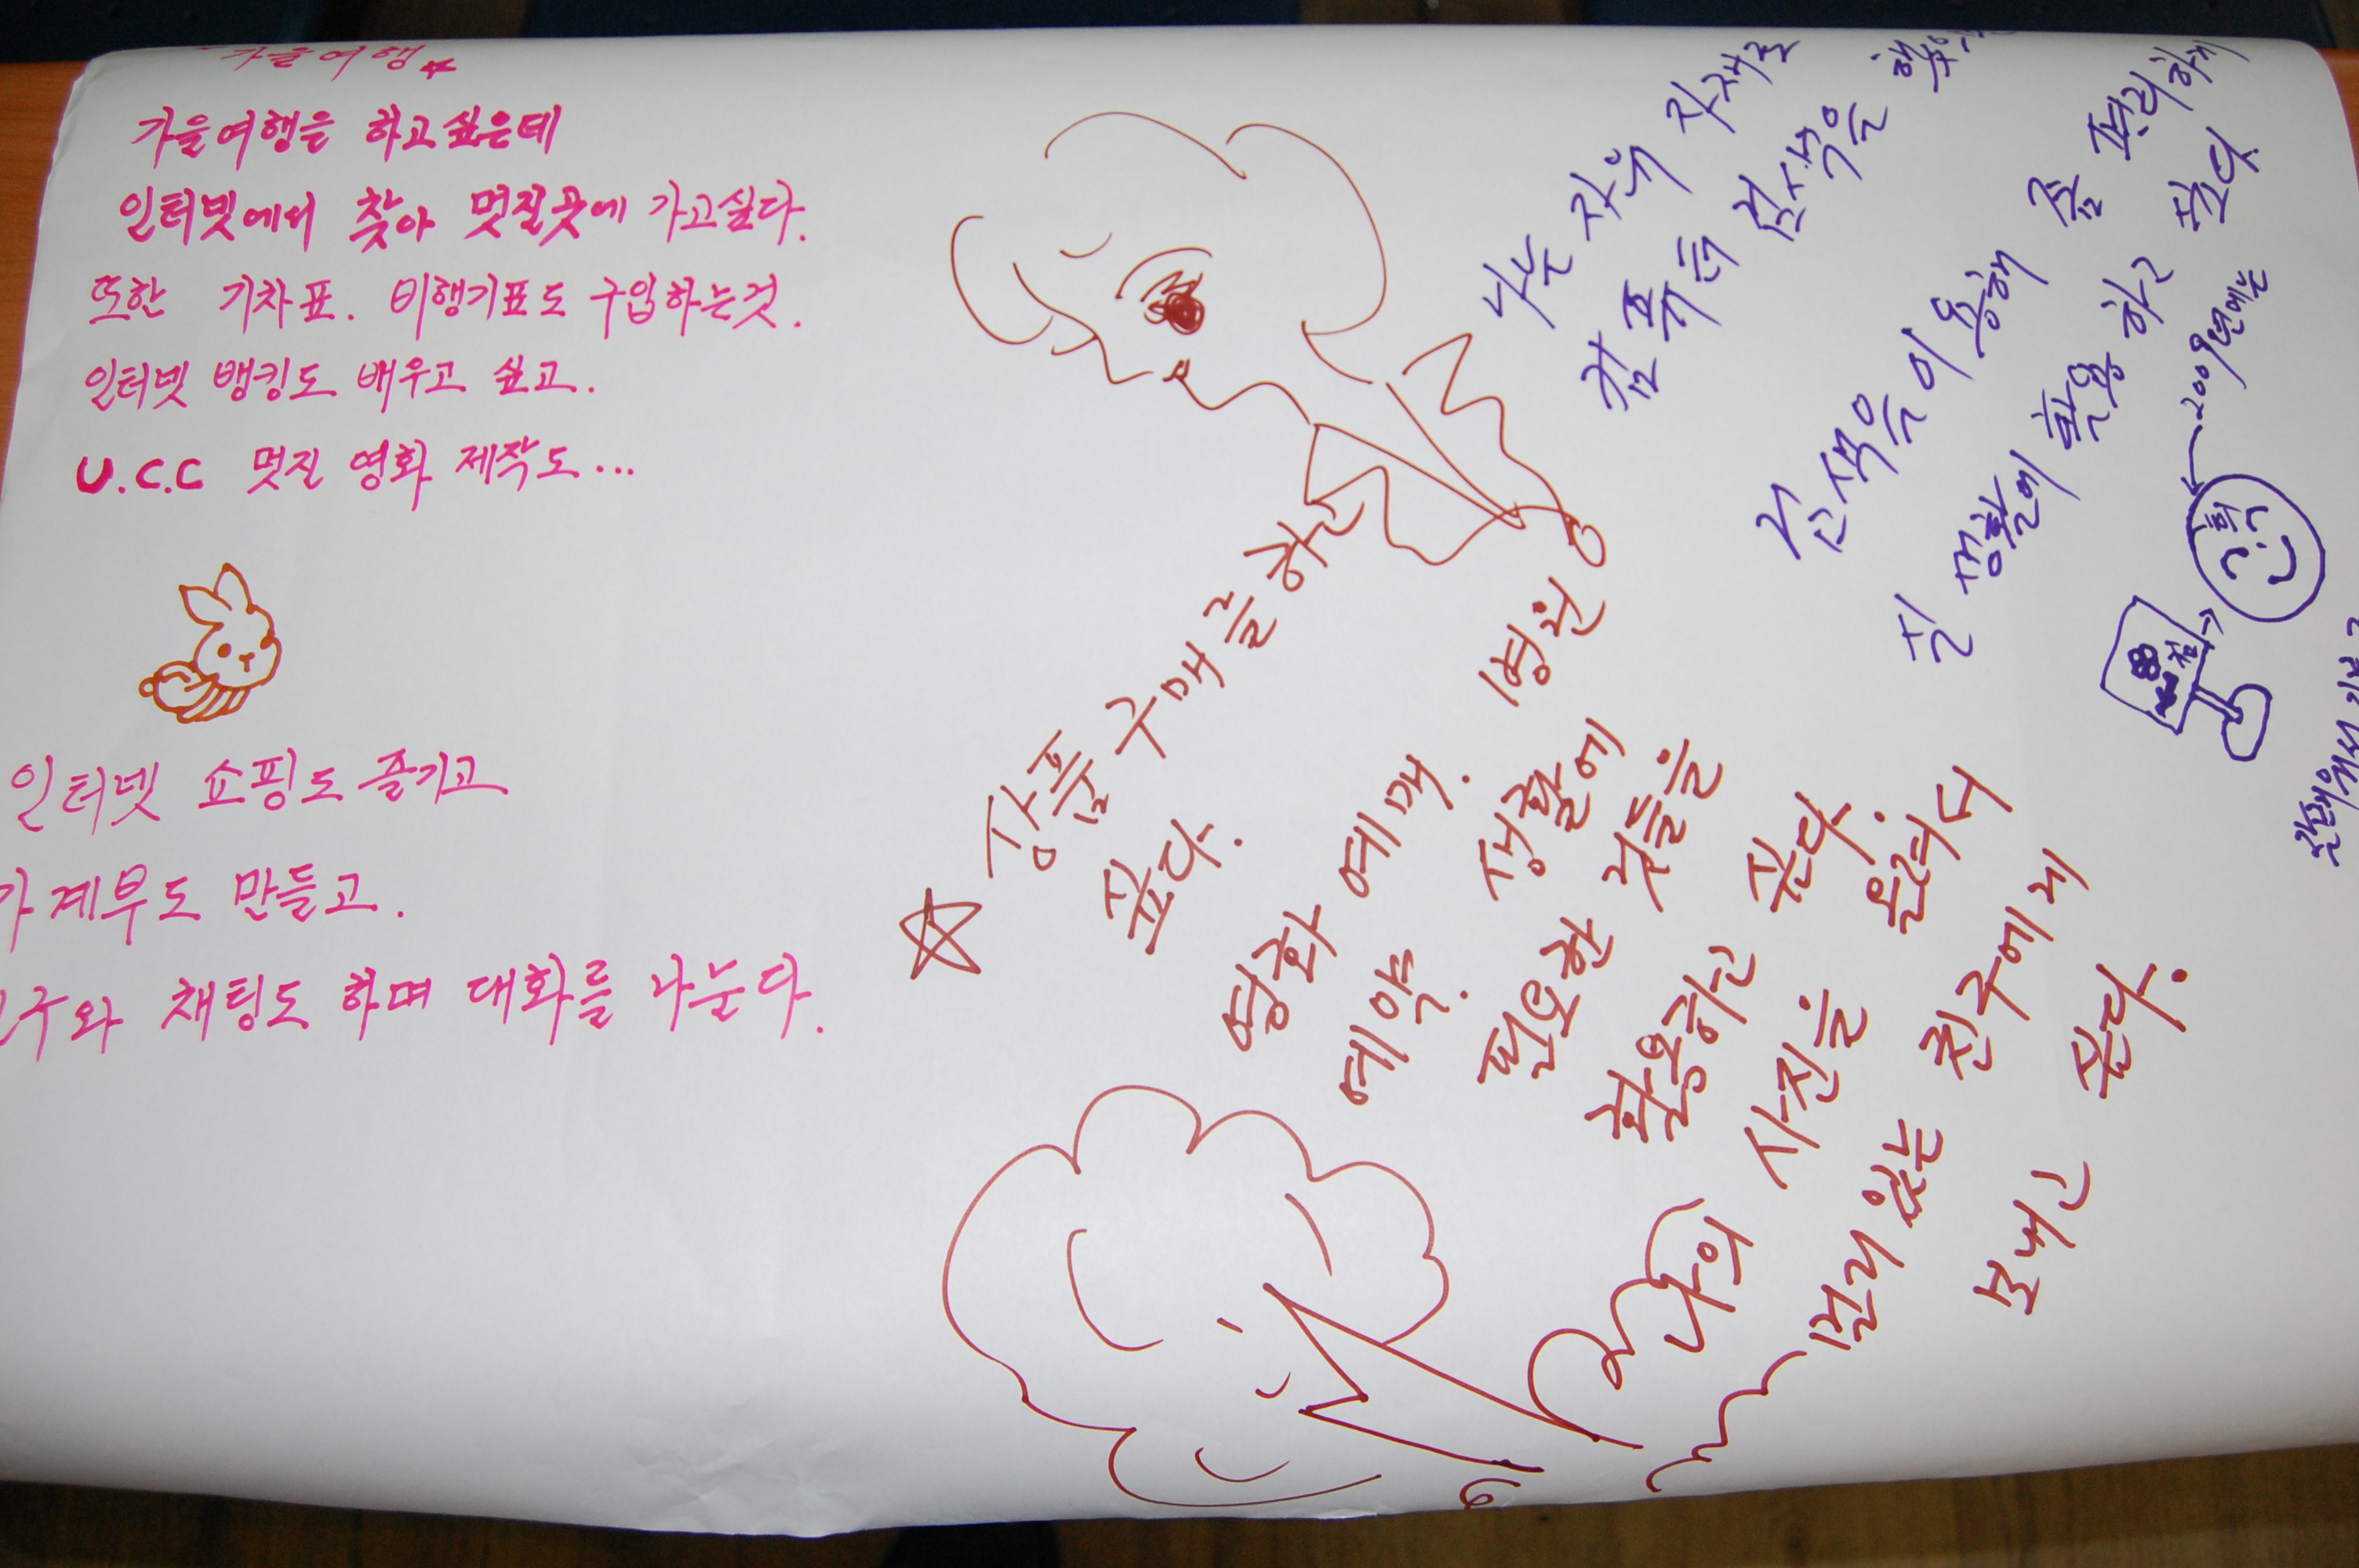 가을여행
가을여행을 하고싶은데
인터넷에서 찾아 멋질곳에 가고싶다.
또한 기차표. 비행기표도 구입하는것.
인터넷 뱅킹도 배우고 싶고.
U.C.C 멋진 영화 제작도...
인터넷 쇼핑도 즐기고
가계부도 만들고.
구와 채팅도 하며 대화를 나눈다.
상품구매를 하고
싶다.
영화 예매. 병원
예약. 생활에
필요한 것들을
활용하고 싶다.
나의 사진을 올려서
멀리 있는 친구에게
보내고 싶다.
나는 자유 자재로
컴퓨터 검색을
검색을 이용해 좀 편리하게
실 생활에 활용하고 싶다.
2009년에는